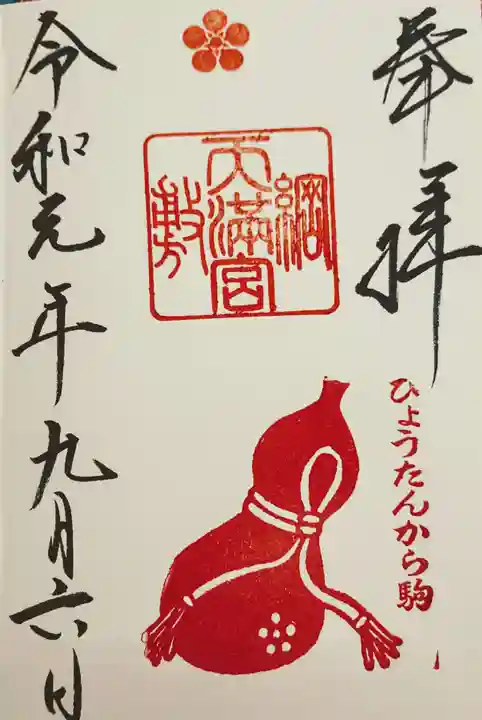 奉拝
ひょうたんから駒
綱敷
天満宮
令和元年九月六日